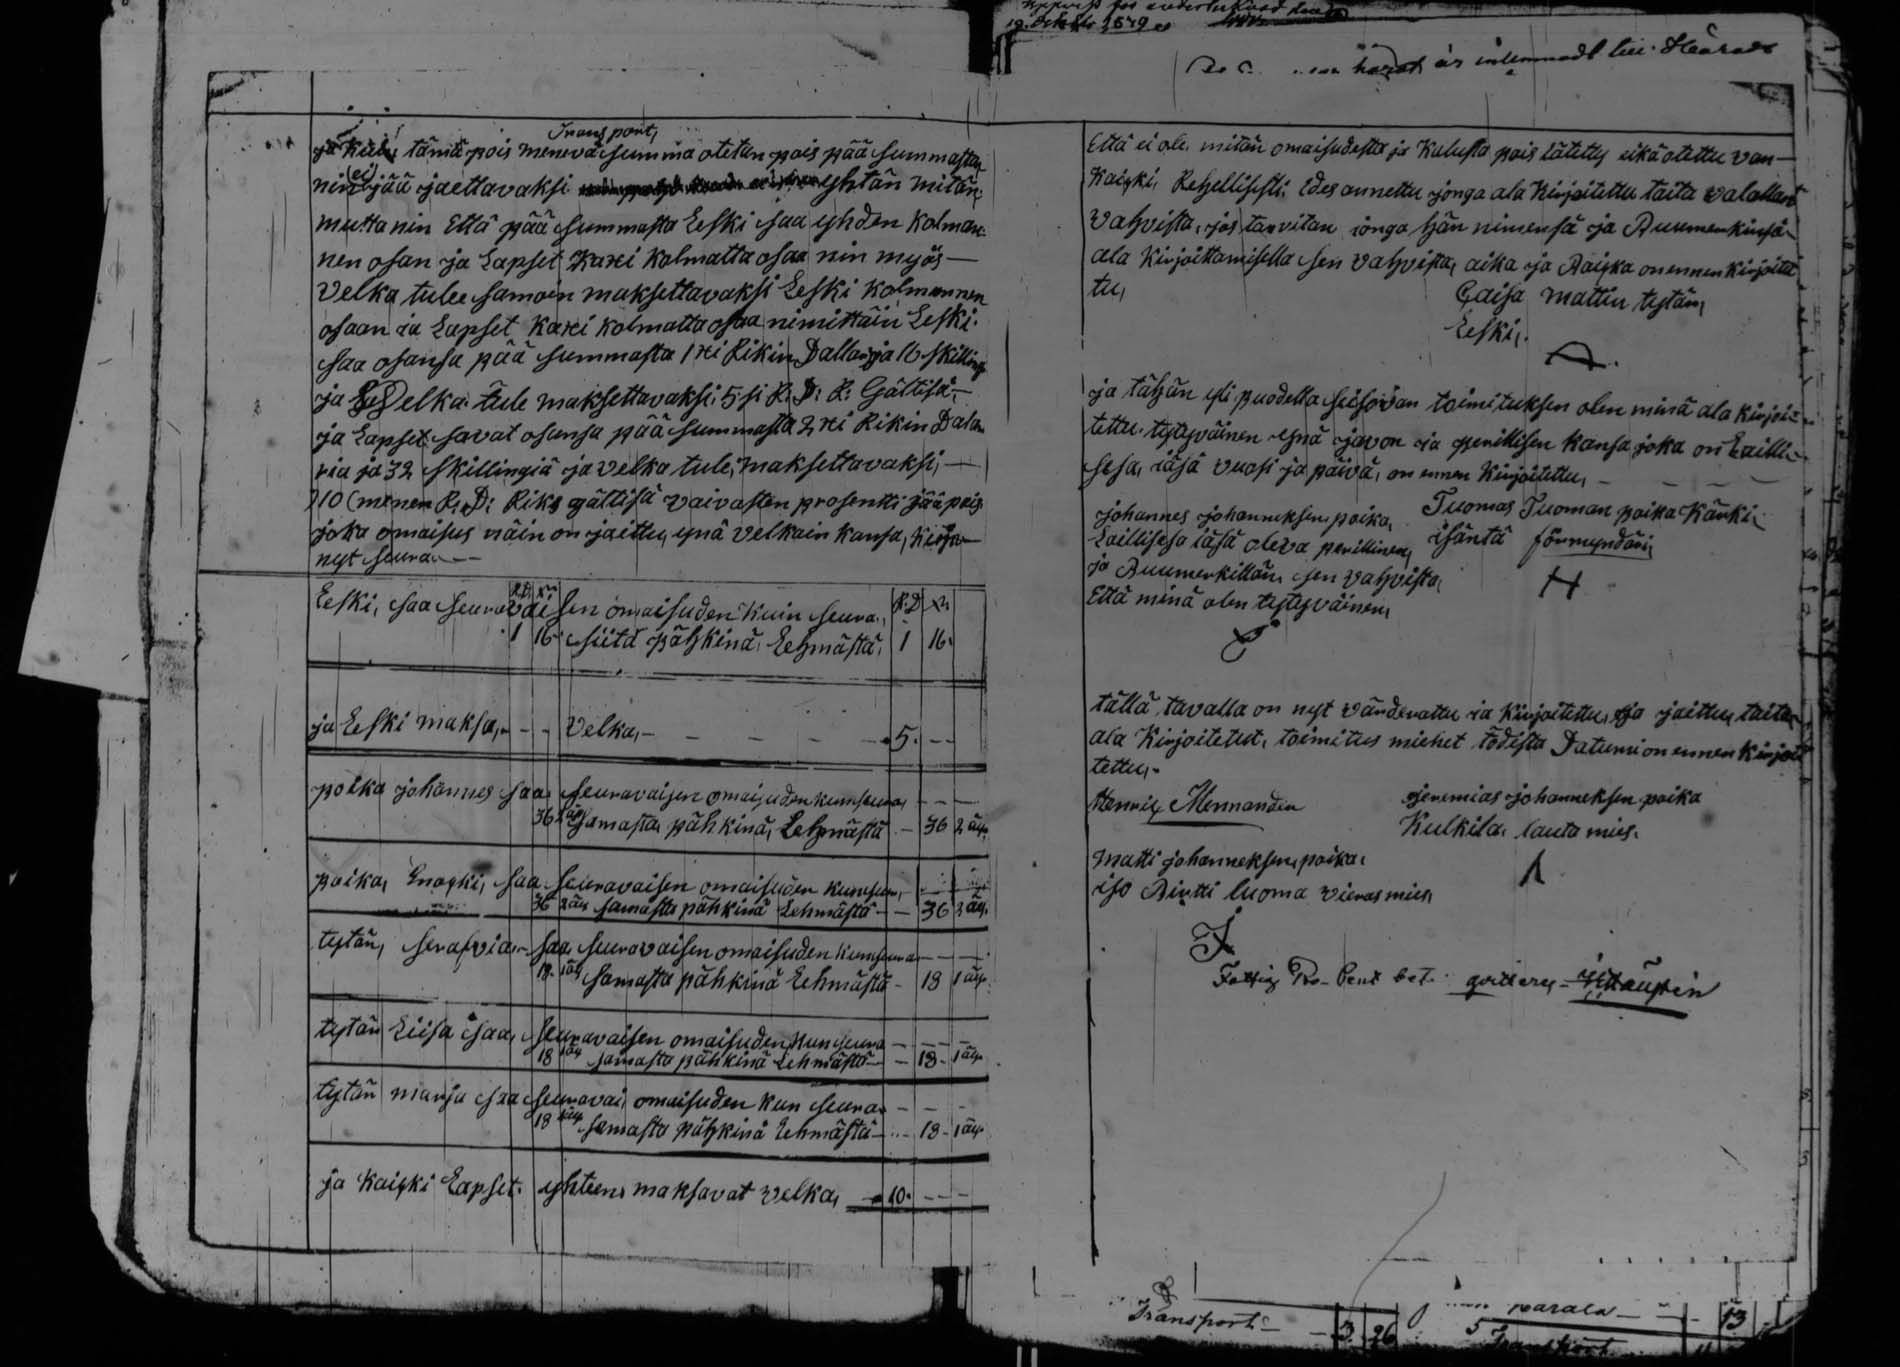 Transport,
ja kuin tämä pois menevä summa otetan pois pää summasta
nin (ei) jää jaettavaksi yhtän mitän,
mutta nin Että pää summasta Leski saa yhden kolman-
nen osan ja Lapset Kaxi kolmatta osaa nin myös —
Velka tulee samoin maksettavaksi Leski kolmannen
osaan ia Lapset kaxi kolmatta osaa nimittäin Leski
saa osansa pää summasta 1 xi Rikin Dallaria 16 skillingi
ja Velka tule maksettavaksi 5 si R: D: R: Gältisä, —
ja Lapset savat osansa pää summasta 2 xi Rikin Dala
ria ja 32 skillingiä ja velka tule, maksettavaksi, —
)10( menen R: D: Riks gältisä vaivasten prosentti jää pois
joka omaisus näin on jaettu, ynä velkain kansa,
nyt seura —
Leski, saa seuravaisen omaisuden kuin seura, R:D
1 16 siitä pähkinä, Lehmästä, 1 16.
ja Leski maksa, - - - Velka, - - - - - 5. - -
poika johannes saa seuravaisen omaisuden kun seura, - - -
36 2 äy samasta pähkinä, Lehmästä - 36 2 äy.
poika, Enogki, saa seuravaisen omaisuden kun seura, - - -
36 2 äy samasta pähkinä Lehmästä - - 36 2 äy.
tytän, serafvia - saa seuravaisen omaisuden kun seura - - -
18 1 äy samasta pähkinä Lehmästä - 18 1 äy.
tytän Liisa saa, seuravaisen omaisuden, kun seura - - -
18 1 äy samasta pähkinä Lehmästä - - 18 - 1 äy.
tytän marja saa seuravai, omaisuden kun seura - - -
18 1 äy samasta pähkinä Lehmästä - 18 - 1 äy.
ja kaikki Lapset. yhteen, maksavat velka, 10. - - -
19. October 1849
är inlemnadt till Härads
Että ei ole mitän omaisudesta ja kalusta pois lätetty eikä otettu van —
kaikki, Rehellisesti Edes annettu jonga ala kirjoitettu taita valallans
vahvista, jos tarvitan jonga hän nimensä ja Puumerkinsä
ala kirjoittamisella sen vahvista, aika ja Paikka on ennen kirjoitet
tu,
Caisa mattin tytän,
Leski,
ja tähän yli puodella seisovan toimituksen olen minä ala kirjoi-
tettu tytyväinen ynä javon ia perillisen kansa joka on Lailli-
sesa, iäsä vuosi ja päivä, on ennen kirjoitettu, - - - -
johannes johanneksen poika,
Laillisesa iäsä oleva perillinen,
ja Puumerkillän sen vahvista,
Että minä olen tytyväinen,
Tuomas Tuoman poika Känki,
isäntä förmyndäri
tällä tavalla on nyt värderattu ia kirjoitettu, ja jaettu, taita
ala kirjoitetut, toimitus miehet todista Datumi on ennen kirjoi
tettu, -
Henrik Mennander
jeremias johanneksen poika
Kulkila. lautamies.
matti johanneksen, poika,
iso Pirtti luoma vieras mies,
Fattig Pro Cent bet. qvitterer
Transport - 3. 26
13
Transport